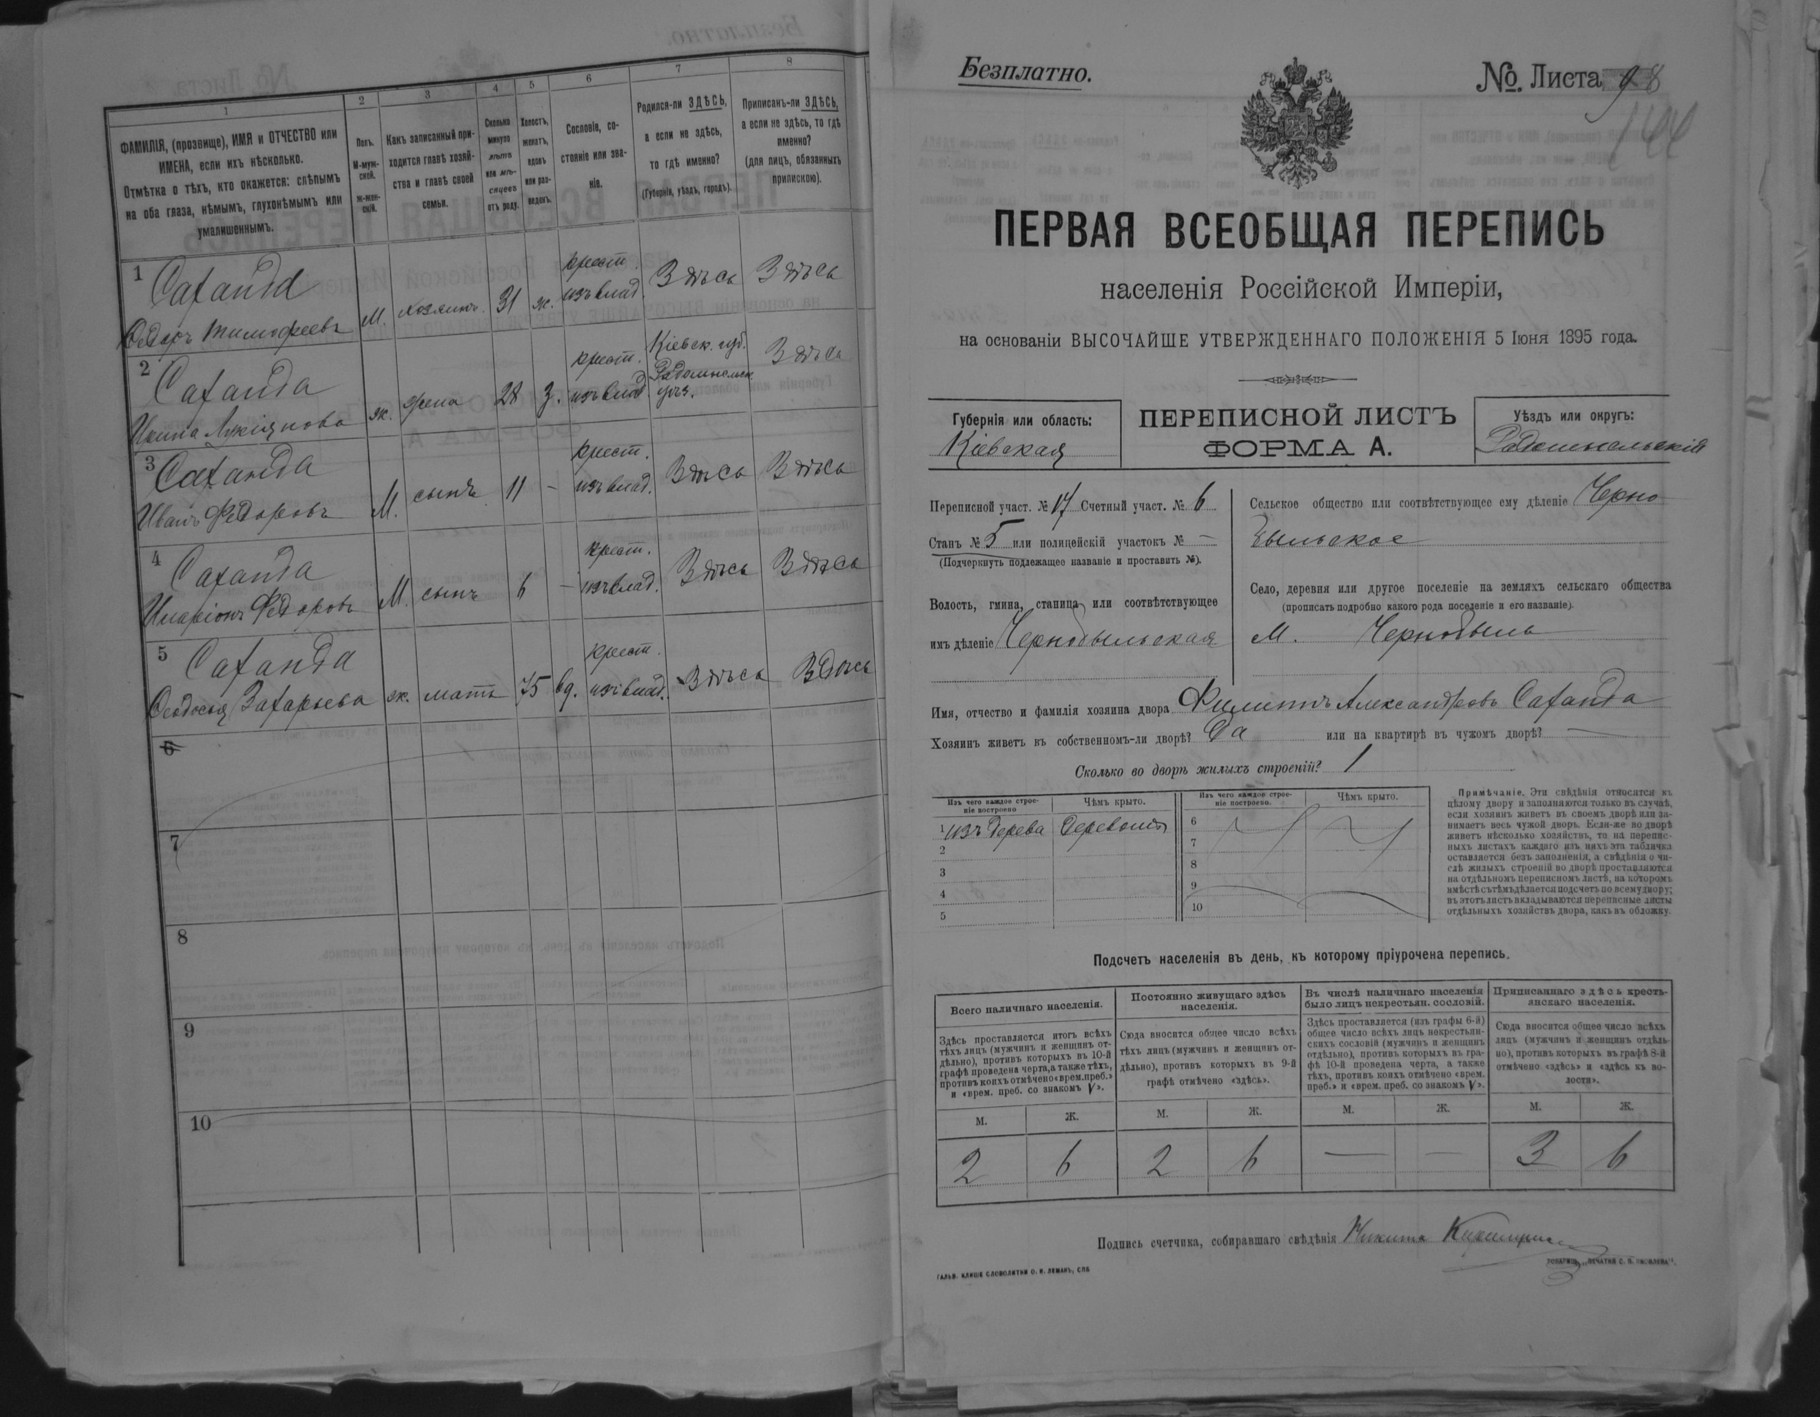 1
2
3
4
5
6
7
8
ФАМИЛІЯ, (прозвище), ИМЯ и ОТЧЕСТВО или
ИМЕНА, если ихъ нѣсколько.
Отмѣтка о тѣхъ, кто окажется: слѣпымъ
на оба глаза, нѣмымъ, глухонѣмымъ или
умалишеннымъ.
Полъ.
М-муж-
ской.
Ж-жен-
скій.
Какъ записанный при-
ходится главѣ хозяй-
ства и главѣ своей
семьи.
Сколько
минуло
лѣтъ
или мѣ-
сяцевъ
отъ роду.
Холостъ,
женатъ,
вдовъ
или раз-
веденъ.
Сословіе, со-
стояніе или зва-
ніе.
Родился-ли ЗДѢСЬ,
а если не здѣсь,
то гдѣ именно?
(Губернія, уѣздъ, городъ).
Приписанъ-ли ЗДѢСЬ,
а если не здѣсь, то гдѣ
именно?
(для лицъ, обязанныхъ
припискою).
1 Саханда крест.
Федоръ Тимофеевъ М. хозяинъ 31 ж. изъ влад. Здѣсь Здѣсь
2 Саханда крест. Кіевск. губ. Здѣсь
Лукіянова ж. жена 28 з. изъ влад. Радомысльск. уѣз.
3 Саханда крест.
Иванъ Федоровъ М. сынъ 11 - изъ влад. Здѣсь Здѣсь
4 Саханда крест.
Иларіонъ Федоровъ М. сынъ 6 - изъ влад. Здѣсь Здѣсь
5 Саханда крест.
Феодосія Захарьева ж. мать 75 вд. изъ влад. Здѣсь Здѣсь
6
7
8
9
10
Безплатно.
№ Листа 98
144
ПЕРВАЯ ВСЕОБЩАЯ ПЕРЕПИСЬ
населенія Россійской Имперіи,
на основаніи ВЫСОЧАЙШЕ УТВЕРЖДЕННАГО ПОЛОЖЕНІЯ 5 Іюня 1895 года.
Губернія или область:
Кіевская
ПЕРЕПИСНОЙ ЛИСТЪ
ФОРМА А.
Уѣздъ или округъ:
Радомысльскій
Переписной участ. № 17 Счетный участ. № 6
Станъ № 5 или полицейскій участокъ № —
(Подчеркнуть подлежащее названіе и проставить №).
Волость, гмина, станица или соотвѣтствующее
имъ дѣленіе Чернобыльская
Сельское общество или соотвѣтствующее ему дѣленіе Черно
быльское
Село, деревня или другое поселеніе на земляхъ сельскаго общества
(прописать подробно какого рода поселеніе и его названіе).
М. Чернобыль
Имя, отчество и фамилія хозяина двора Филиппъ Александровъ Саханда
Хозяинъ живетъ въ собственномъ-ли дворѣ? Да или на квартирѣ въ чужомъ дворѣ? —
Сколько во дворѣ жилыхъ строеній? 1
Изъ чего каждое строе-
ніе построено
Чѣмъ крыто.
Изъ чего каждое строе-
ніе построено.
Чѣмъ крыто.
1 изъ дерева деревомъ
2
3
4
5
6
7
8
9
10
Примѣчаніе. Эти свѣдѣнія относятся къ
цѣлому двору и заполняются только въ случаѣ,
если хозяинъ живетъ въ своемъ дворѣ или за-
нимаетъ весь чужой дворъ. Если-же во дворѣ
живетъ нѣсколько хозяйствъ, то на перепис-
ныхъ листахъ каждаго изъ нихъ эта табличка
оставляется безъ заполненія, а свѣдѣнія о чи-
слѣ жилыхъ строеній во дворѣ проставляются
на отдѣльномъ переписномъ листѣ, на которомъ
вмѣстѣ съ тѣмъ дѣлается подсчетъ по всему двору;
въ этотъ листъ вкладываются переписные листы
отдѣльныхъ хозяйствъ двора, какъ въ обложку.
Подсчетъ населенія въ день, къ которому пріурочена перепись.
Всего наличнаго населенія.
Постоянно живущаго здѣсь
населенія.
Въ числѣ наличнаго населенія
было лицъ некрестьян. сословій.
Приписаннаго здѣсь кресть-
янскаго населенія.
Здѣсь проставляется итогъ всѣхъ
тѣхъ лицъ (мужчинъ и женщинъ от-
дѣльно), противъ которыхъ въ 10-й
графѣ проведена черта, а также тѣхъ,
противъ коихъ отмѣчено «врем. преб.»
и «врем. преб. со знакомъ V».
Сюда вносится общее число всѣхъ
тѣхъ лицъ (мужчинъ и женщинъ от-
дѣльно), противъ которыхъ въ 9-й
графѣ отмѣчено «здѣсь».
Здѣсь проставляется (изъ графы 6-й)
общее число всѣхъ лицъ некрестьян-
скихъ сословій (мужчинъ и женщинъ
отдѣльно), противъ которыхъ въ гра-
фѣ 10-й проведена черта, а также
тѣхъ, противъ коихъ отмѣчено «врем.
преб.» и «врем. преб. со знакомъ V».
Сюда вносится общее число всѣхъ
лицъ (мужчинъ и женщинъ отдѣль-
но), противъ которыхъ въ графѣ 8-й
отмѣчено «здѣсь» и «здѣсь къ во-
лости».
М. Ж. М. Ж. М. Ж. М. Ж.
2 6 2 6 — — 3 6
Подпись счетчика, собиравшаго свѣдѣнія Никита
ГАЛЬВ. КЛИШЕ СЛОВОЛИТНИ О. И. ЛЕМАНЪ, СПБ
ТОВАРИЩ. „ПЕЧАТНЯ С. П. ЯКОВЛЕВА“.